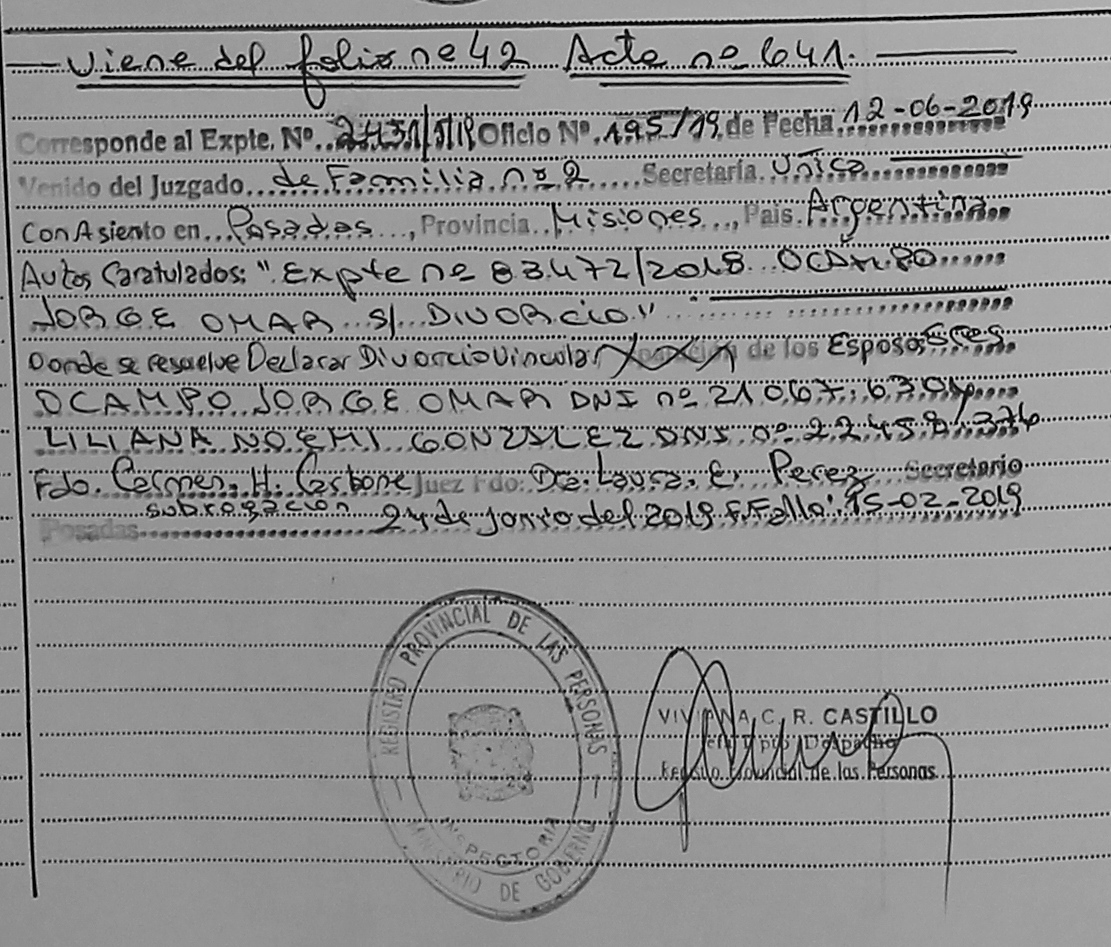 Viene del folio nº 42 Acta nº 641.
Corresponde al Expte. Nº. 2431/S/19 Oficio Nº. 195/19. de Fecha 12-06-2019
Venido del Juzgado de Familia nº 2 Secretaría. Unica
Con Asiento en Posadas, Provincia Misiones, País. Argentina
Autos Caratulados: "Expte nº 83.472/2018 OCAMPO
JORGE OMAR S/ DIVORCIO"
Donde se resuelve Declarar Divorcio Vincular de los Esposos Sres
OCAMPO JORGE OMAR DNI nº 21.067.630 y
LILIANA NOEMI GONZALEZ DNI nº 22.458.374
Fdo. Carmen. H. Carbone Juez Fdo: Dra. Laura. E. Perez Secretario
subrogación
Posadas 24 de junio del 2019 F. Fallo: 15-02-2019
REGISTRO PROVINCIAL DE LAS PERSONAS
INSPECTORIA
MINISTERIO DE GOBIERNO
VIVIANA C. R. CASTILLO
Despacho
Registro Provincial de las Personas